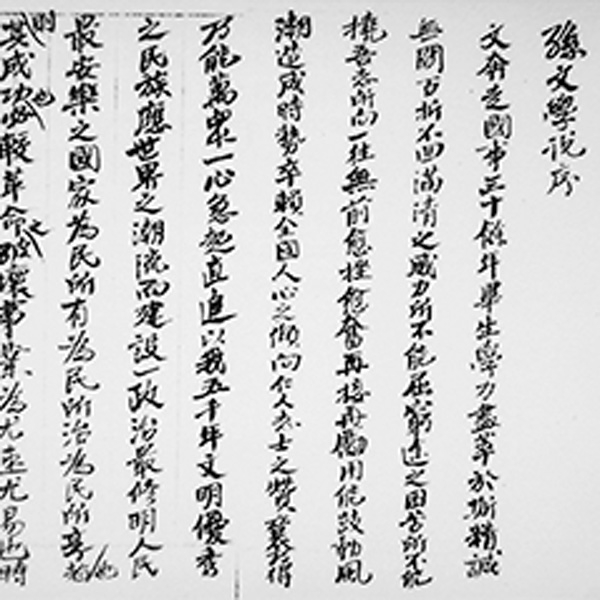 孫文學説序
文奔走國事三十餘年畢生學力盡萃於斯精誠
無間百折不回滿清之威力所不能屈窮途之困苦所不能
撓吾志所向一往無前愈挫愈奮再接再勵用能鼓動風
潮造成時勢卒賴全國人心之傾向仁人志士之贊襄得
乃能萬眾一心急起直追以我五千年文明優秀
之民族應世界之潮流而建設一政治最修明人民
最安樂之國家為民所有為民所治為民所享者也
其成功必較革命之破壞事業為尤速尤易也時